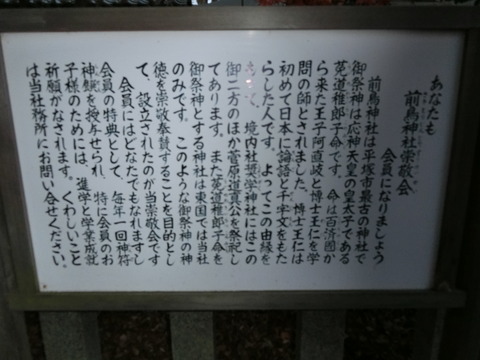 あなたも
前鳥神社崇敬会
会員になりましょう
前鳥神社は平塚市最古の神社で
御祭神は応神天皇の皇太子である
菟道稚郎子命です。命は百済国か
ら来た王子阿直岐と博士王仁を学
問の師とされました。博士王仁は
初めて日本に論語と千字文をもた
らした人です。よってこの由縁を
もって、境内社奨学神社にはこの
御二方のほか菅原道真公を祭祀し
てあります。また菟道稚郎子命を
御祭神とする神社は東国では当社
のみです。このような御祭神の神
徳を崇敬奉賛することを目的とし
て、設立されたのが当崇敬会です
会員にはどなたでもなれますし
会員の特典として、毎年一回神符
神饌を授与せられ、特に会員のお
子様のためには、進学と学業成就
祈願がなされます。くわしいこと
は当社務所にお問い合せください。